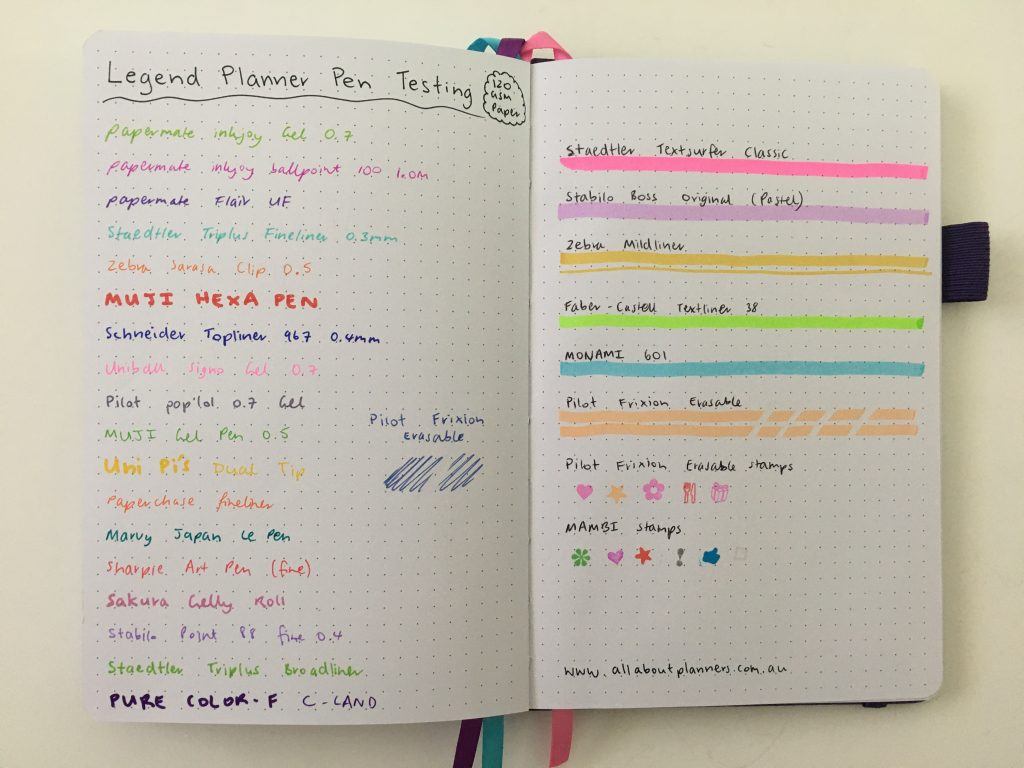 Legend Planner Pen Testing
120
GSM
Paper
papermate inkjoy Gel 0.7
papermate inkjoy ballpoint 100 1.0m
papermate Flair UF
Staedtler Triplus Fineliner 0.3mm
Zebra Sarasa Clip 0.5
MUJI HEXA PEN
Schneider Topliner 967 0.4mm
Uniball Signo Gel 0.7
Pilot popilol 0.7 Gel
MUJI Gel Pen 0.5
Uni Pi's Dual Tip
Paperchase fineliner
Marvy Japan Le Pen
Sharpie Art Pen (fine)
Sakura Gelly Roll
Stabilo Point 88 fine 0.4
Staedtler Triplus Broadliner
PURE COLOR-F C-LAND
Pilot Frixion
Erasable
Staedtler Textsurfer Classic
Stabilo Boss Original (Pastel)
Zebra Mildliner
Faber-Castell Textliner 38
MONAMI 601
Pilot Frixion Erasable
Pilot Frixion Erasable stamps
MAMBI stamps
www.allaboutplanners.com.au